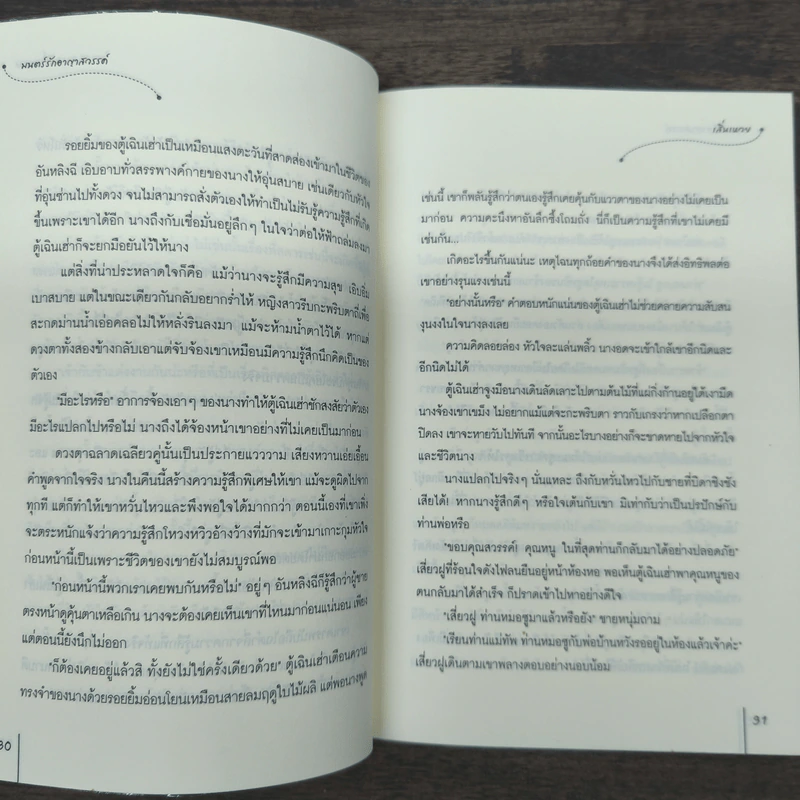 มนตร์รักอาญาสวรรค์
รอยยิ้มของตู้เฉินเฮ่าเป็นเหมือนแสงตะวันที่สาดส่องเข้ามาในชีวิตของ
อันหลิงฉี เอิบอาบทั่วสรรพางค์กายของนางให้อุ่นสบาย เช่นเดียวกับหัวใจ
ที่อุ่นซ่านไปทั้งดวง จนไม่สามารถสั่งตัวเองให้ทำเป็นไม่รับรู้ความรู้สึกที่เกิด
ขึ้นเพราะเขาได้อีก นางถึงกับเชื่อมั่นอยู่ลึกๆ ในใจว่าต่อให้ฟ้าถล่มลงมา
ตู้เฉินเฮ่าก็จะยกมือยันไว้ให้นาง
แต่สิ่งที่น่าประหลาดใจก็คือ แม้ว่านางจะรู้สึกมีความสุข เอิบอิ่ม
เบาสบาย แต่ในขณะเดียวกันกลับอยากร่ำไห้ หญิงสาวรีบกะพริบตาถี่เพื่อ
สะกดม่านน้ำเอ่อคลอไม่ให้หลั่งรินลงมา แม้จะห้ามน้ำตาไว้ได้ หากแต่
ดวงตาทั้งสองข้างกลับเอาแต่จับจ้องเขาเหมือนมีความรู้สึกนึกคิดเป็นของ
ตัวเอง
"มีอะไรหรือ" อาการจ้องเอาๆ ของนางทำให้ตู้เฉินเฮ่าชักสงสัยว่าตัวเอง
มีอะไรแปลกไปหรือไม่ นางถึงได้จ้องหน้าเขาอย่างที่ไม่เคยเป็นมาก่อน
ดวงตาฉลาดเฉลียวคู่นั้นเป็นประกายแวววาม เสียงหวานเอ่ยเอื้อน
คำพูดจากใจจริง นางในคืนนี้สร้างความรู้สึกพิเศษให้เขา แม้จะดูผิดไปจาก
ทุกที แต่ก็ทำให้เขาหวั่นไหวและพึงพอใจได้มากกว่า ตอนนี้เองที่เขาเพิ่ง
จะตระหนักแจ้งว่าความรู้สึกโหวงหวิวอ้างว้างที่มักจะเข้ามาเกาะกุมหัวใจ
ก่อนหน้านี้เป็นเพราะชีวิตของเขายังไม่สมบูรณ์พอ
"ก่อนหน้านี้พวกเราเคยพบกันหรือไม่" อยู่ๆ อันหลิงฉีก็รู้สึกว่าผู้ชาย
ตรงหน้าดูคุ้นตาเหลือเกิน นางจะต้องเคยเห็นเขาที่ไหนมาก่อนแน่นอน เพียง
แต่ตอนนี้ยังนึกไม่ออก
"ก็ต้องเคยอยู่แล้วสิ ทั้งยังไม่ใช่ครั้งเดียวด้วย" ตู้เฉินเฮ่าเตือนความ
ทรงจำของนางด้วยรอยยิ้มอ่อนโยนเหมือนสายลมฤดูใบไม้ผลิ แต่พอนางพูด
30
เสิ่นเหวย
เช่นนี้ เขาก็พลันรู้สึกว่าตนเองรู้สึกเคยคุ้นกับแววตาของนางอย่างไม่เคยเป็น
มาก่อน ความคะนึงหาอันลึกซึ้งโถมถั่ง นี่ก็เป็นความรู้สึกที่เขาไม่เคยมี
เช่นกัน...
เกิดอะไรขึ้นกันแน่นะ เหตุไฉนทุกถ้อยคำของนางจึงได้ส่งอิทธิพลต่อ
เขาอย่างรุนแรงเช่นนี้
"อย่างนั้นหรือ" คำตอบหนักแน่นของตู้เฉินเฮ่าไม่ช่วยคลายความสับสน
งุนงงในใจนางลงเลย
ความคิดลอยล่อง หัวใจละแล่นพลิ้ว นางอดจะเข้าใกล้เขาอีกนิดและ
อีกนิดไม่ได้
ตู้เฉินเฮ่าจูงมือนางเดินลัดเลาะไปตามต้นไม้ที่แผ่กิ่งก้านอยู่ใต้เงามืด
นางจ้องเขาเขม็ง ไม่อยากแม้แต่จะกะพริบตา ราวกับเกรงว่าหากเปลือกตา
ปิดลง เขาจะหายวับไปทันที จากนั้นอะไรบางอย่างก็จะขาดหายไปจากหัวใจ
และชีวิตนาง
นางแปลกไปจริงๆ นั่นแหละ ถึงกับหวั่นไหวไปกับชายที่บิดาชิงชัง
เสียได้! หากนางรู้สึกดีๆ หรือใจเต้นกับเขา มิเท่ากับว่าเป็นปรปักษ์กับ
ท่านพ่อหรือ
"ขอบคุณสวรรค์! คุณหนู ในที่สุดท่านก็กลับมาได้อย่างปลอดภัย"
เสี่ยวฝูที่ร้อนใจดังไฟลนยืนอยู่หน้าห้องหอ พอเห็นตู้เฉินเฮ่าพาคุณหนูของ
ตนกลับมาได้สำเร็จ ก็ปราดเข้าไปหาอย่างดีใจ
"เสี่ยวฝู ท่านหมอซูมาแล้วหรือยัง" ชายหนุ่มถาม
"เรียนท่านแม่ทัพ ท่านหมอซูกับพ่อบ้านหวังรออยู่ในห้องแล้วเจ้าค่ะ"
เสี่ยวฝูเดินตามเขาพลางตอบอย่างนอบน้อม
31